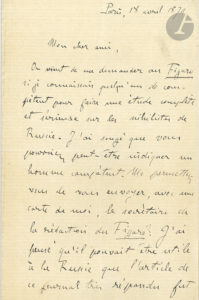 Paris, 18 avril 18
Mon cher ami,
On vient de me demander au Figaro
si je connaissais quelqu'un de com-
pétent pour faire une étude complète
et sérieuse sur les nihilistes de
Russie. J'ai songé que vous
pourriez peut-être indiquer un
homme compétent. Me permettez-
vous de vous envoyer, avec une
carte de moi, le secrétaire de
la rédaction du Figaro? J'ai
pensé qu'il pouvait être utile
à la Russie que l'article de
ce journal très répandu fut